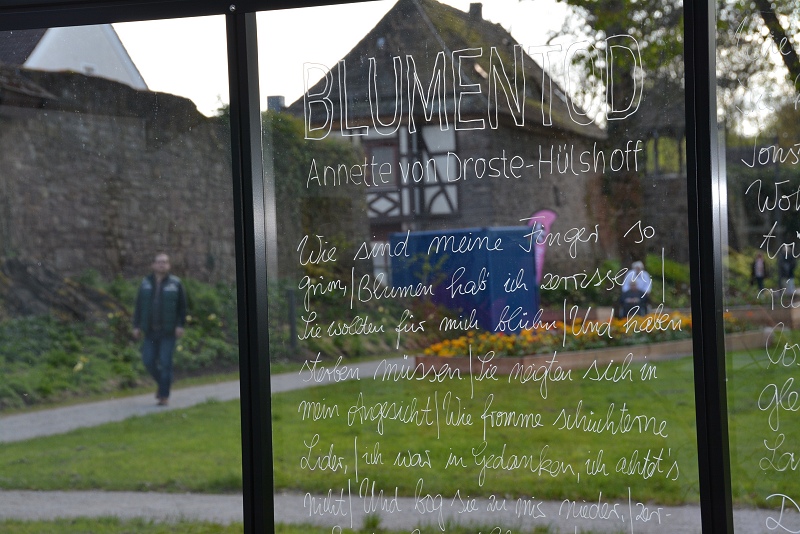 BLUMENTOD
Annette von Droste-Hülshoff
Wie sind meine Finger so
grün,|Blumen hab' ich zerrissen|
Sie wollten für mich blühn|Und haben
sterben müssen|Sie neigten sich in
mein Angesicht|Wie fromme schüchterne
Lider,|ich war in Gedanken, ich achtet's
nicht|Und bog sie zu mir nieder,|zer-